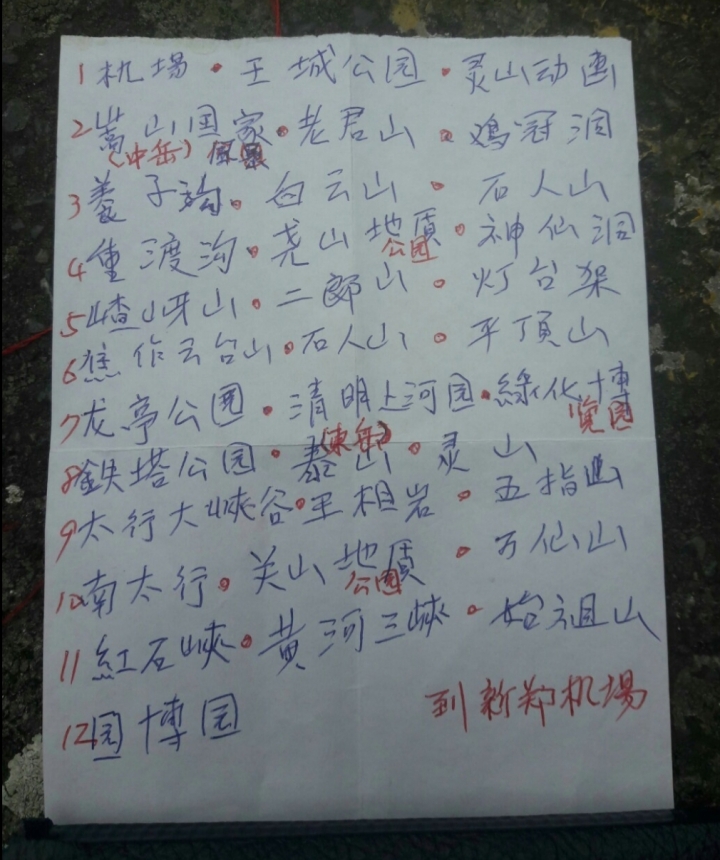 1机場·王城公园·灵山动画
2嵩山国家·老君山·鸡冠洞
(中岳)
3养子沟·白云山·石人山
4重渡沟·尧山地質·神仙洞
公园
5嵖岈山·二郎山·灯台架
6焦作云台山·石人山·平頂山
7龙亭公园·清明上河园·綠化博
覚园
(東岳)
8鉄塔公园·泰山·灵山
9太行大峽谷·王相岩·五指山
10南太行·关山地質·万仙山
公园
11紅石峽·黄河三峽·始祖山
12园博园
到新郑机場